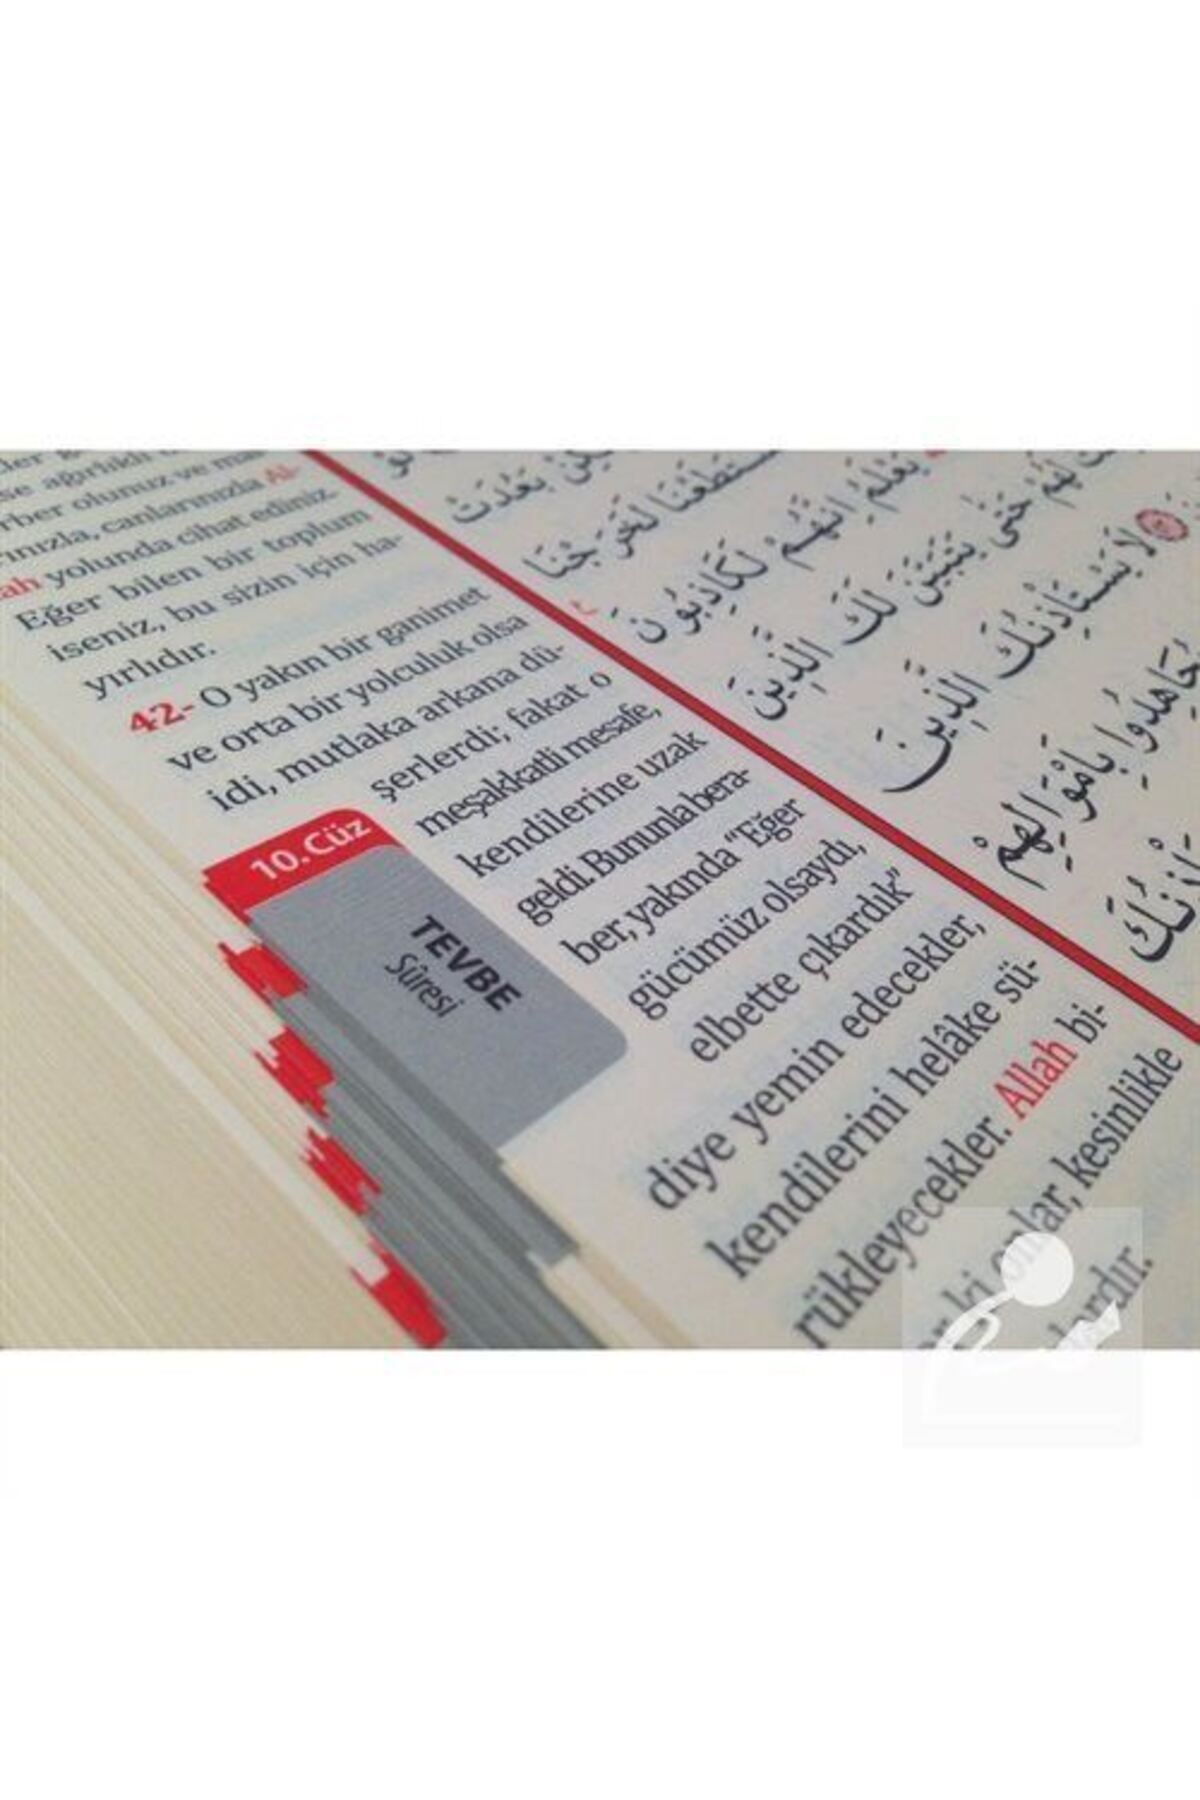 se ağırlıklı
olunuz ve
canlarınızla Al-
yolunda cihat ediniz.
Eğer bilen bir toplum
iseniz, bu sizin için ha-
yırlıdır.
42- O yakın bir ganimet
ve orta bir yolculuk olsa
idi, mutlaka arkana dü-
şerlerdi; fakat o
meşakkatli mesafe,
kendilerine uzak
geldi. Bununla bera-
ber, yakında “Eğer
gücümüz olsaydı,
elbette çıkardık”
diye yemin edecekler,
kendilerini helâke sü-
rükleyecekler. Allah bi-
ki onlar, kesinlikle
10. Cüz
TEVBE
Sûresi
بَعُدَتْ
لَخَرَجْنَا
يَعْلَمُ اِنَّهُمْ لَكَاذِبُونَ
لَهُمْ حَتّٰى يَتَبَيَّنَ لَكَ الَّذِينَ
لَا يَسْتَأْذِنُكَ الَّذِينَ
يُجَاهِدُوا بِاَمْوَالِهِمْ